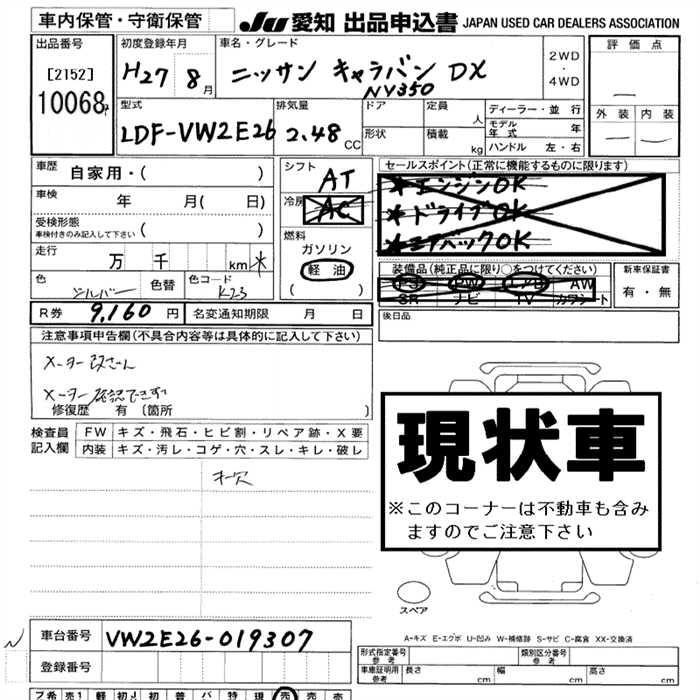 車内保管・守衛保管
JU 愛知 出品申込書 JAPAN USED CAR DEALERS ASSOCIATION
出品番号
[2152]
10068
初度登録年月
H27年 8月
車名・グレード
ニッサン キャラバン DX
NV350
2WD
・
4WD
評価点
外装 内装
型式
LDF-VW2E26
排気量
2.48 CC
ドア
形状
定員 人
積載 kg
ディーラー・並行
モデル年式 年
ハンドル 左・右
車歴
自家用・( )
車検
年 月( 日)
受検形態
車検付きのみ記入して下さい ( )
走行
万 千 km *
色
シルバー
色替
色コード
K23
シフト
AT
冷房
AC
燃料
ガソリン
軽油
( )
セールスポイント(正常に機能するものに限ります)
*エンジンOK
*ドライブOK
*エアバックOK
装備品(純正品に限り○をつけてください)
PS PW エアB AW
SR ナビ TV カワシート
新車保証書
有・無
後日品
R券 9,160円 名変通知期限 月 日
注意事項申告欄(不具合内容等は具体的に記入して下さい)
メーター改ざん
メーター確認できず
修復歴 有 (箇所 )
検査員
記入欄
FW キズ・飛石・ヒビ割・リペア跡・X要
内装 キズ・汚レ・コゲ・穴・スレ・キレ・破レ
現状車
※このコーナーは不動車も含み
ますのでご注意下さい
スペア
A-キズ E-エクボ U-凹み W-補修跡 S-サビ C-腐食 XX-交換済
車台番号 VW2E26-019307
登録番号
形式指定番号
参考
類別区分番号
参考
車庫証明用
参考
長さ cm 幅 cm 高さ cm